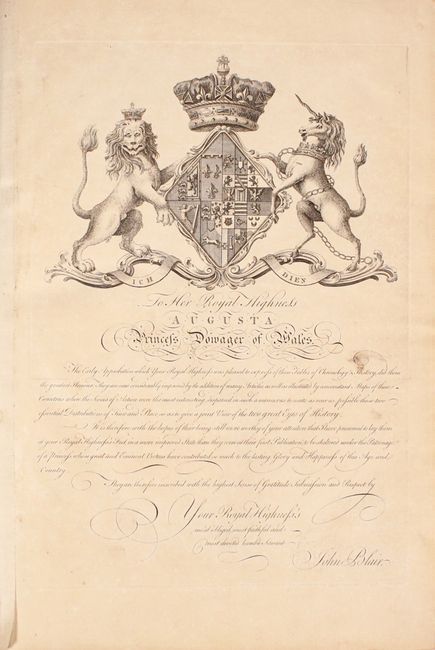 ICH DIEN
To Her Royal Highneſs
AUGUSTA
Princeſs Dowager of Wales.
The Early Approbation which Your Royal Highneſs was pleased to expreſs of these Tables of Chronology & History, did them
the greatest Honour. They are now considerably improved by the addition of many Articles as well as illustrated by Maps of those
Countries where the Scene of Action were the most interesting; disposed in such a manner as to unite as near as poſsible these two
eſsential Distributions of Time and Place so as to give a joint View of the two great Eyes of History.
It is therefore with the hopes of their being still as worthy of your attention that I have presumed to lay them
at your Royal Highneſs's Feet in a more improved State than they were at their first Publication; to be sheltered under the Patronage
of a Princeſs whose great and Eminent Virtues have contributed so much to the lasting Glory and Happineſs of this Age and
Country.
They are therefore inscribed with the highest Sense of Gratitude Submiſsion and Respect by
Your Royal Highneſs's
most obliged, most faithful and
most devoted humble Servant
John Blair.